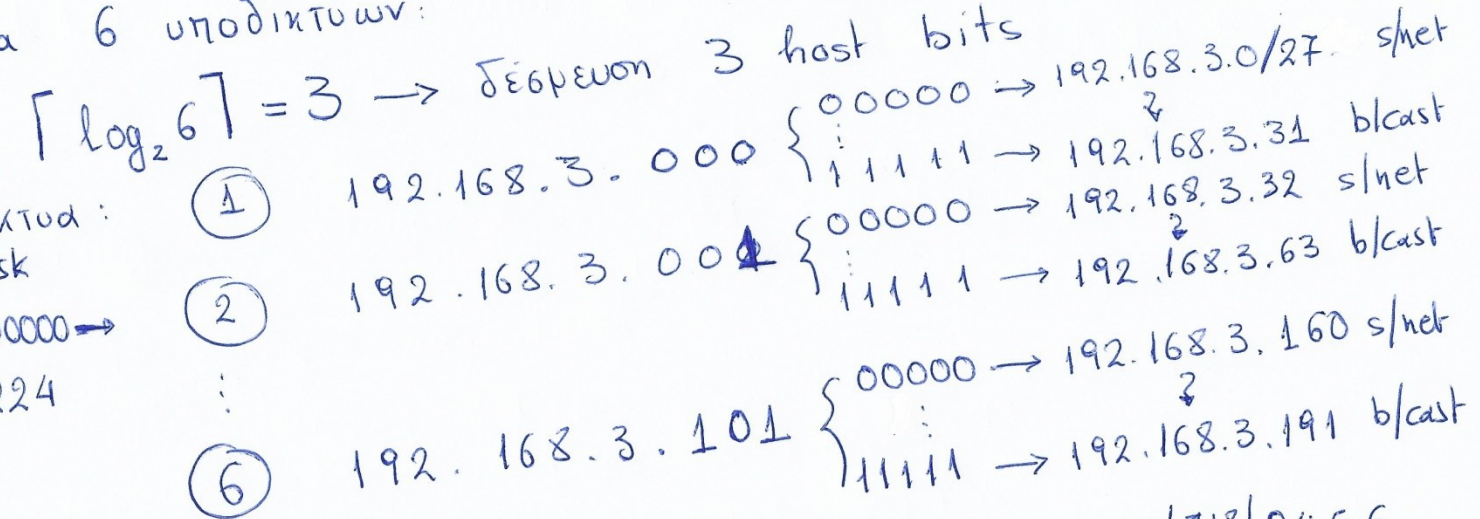 6 υποδικτύων:
⌈log₂6⌉ = 3 → δέσμευση 3 host bits
① 192.168.3.000 { 00000 → 192.168.3.0/27 s/net
⋮
11111 → 192.168.3.31 b/cast
κτυα:
sk
② 192.168.3.001 { 00000 → 192.168.3.32 s/net
⋮
11111 → 192.168.3.63 b/cast
0000→
224
⋮
⑥ 192.168.3.101 { 00000 → 192.168.3.160 s/net
⋮
11111 → 192.168.3.191 b/cast